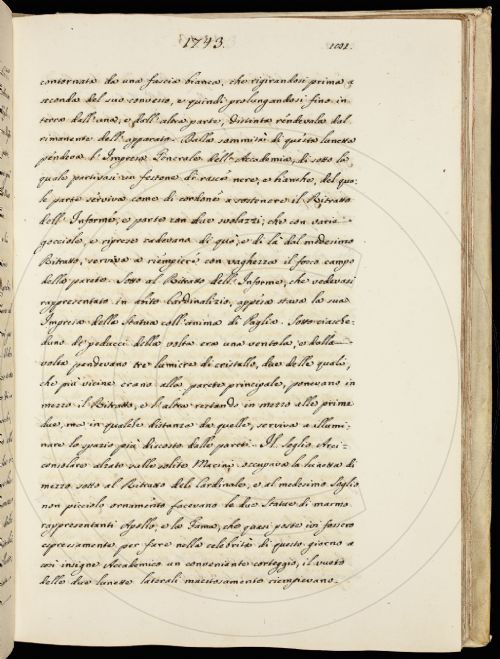 1743.
1021.
contornata da una fascia bianca, che rigirandosi prima a
seconda del suo convesso, e quindi prolungandosi fino in
terra dall'una, e dall'altra parte, distinta rendevala dal
rimanente dell'apparato. Dalla sommità di questa lunetta
pendeva l'Impresa Generale dell'Accademia, di sotto la
quale partivasi un festone di rasce nere, e bianche, del qua:
le parte serviva come di cordone a sostenere il Ritratto
dell'Informe, e parte con due svolazzi, che con varie
gocciole, e riprese cadevano di quà, e di là dal medesimo
Ritratto, serviva a riempiere con vaghezza il fosco campo
della parete. Sotto al Ritratto dell'Informe, che vedevasi
rappresentato in abito Cardinalizio, appesa stava la sua
Impresa della Statua coll'anima di Paglia. Sotto ciasche:
duno de' peducci della volta era una ventola, e dalla
volta pendevano tre lumiere di cristallo, due delle quali,
che più vicine erano alla parete principale, ponevano in
mezzo il Ritratto, e l'altra restando in mezzo alle prime
due, ma in qualche distanza da quelle, serviva a illumi:
nare lo spazio più discosto dalle pareti. Il Soglio Arci:
consolare alzato sulle solite Macini occupava la lunetta di
mezzo sotto al Ritratto del Cardinale, e al medesimo Soglio
non picciolo ornamento facevano le due Statue di marmo
rappresentanti Apollo, e la Fama, che quasi poste ivi fossero
espressamente per fare nella celebrità di questo giorno a
così insigne Accademico un conveniente corteggio, il vuoto
delle due lunette laterali maestosamente riempievano.